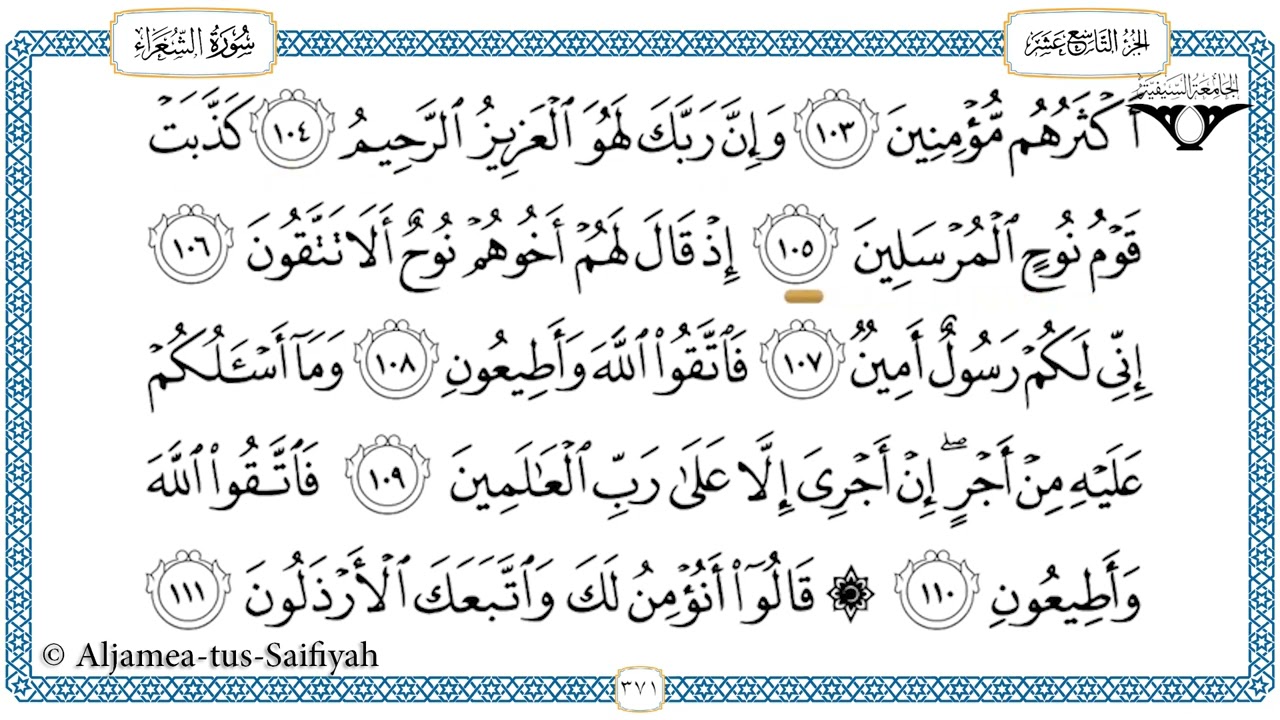 سُورَةُ الشُّعَرَاء
الجُزْءُ التَّاسِعَ عَشَرَ
الجامعة السيفية
أَكْثَرُهُم مُّؤْمِنِينَ ١٠٣ وَإِنَّ رَبَّكَ لَهُوَ ٱلْعَزِيزُ ٱلرَّحِيمُ ١٠٤ كَذَّبَتْ
قَوْمُ نُوحٍ ٱلْمُرْسَلِينَ ١٠٥ إِذْ قَالَ لَهُمْ أَخُوهُمْ نُوحٌ أَلَا تَتَّقُونَ ١٠٦
إِنِّى لَكُمْ رَسُولٌ أَمِينٌ ١٠٧ فَٱتَّقُوا۟ ٱللَّهَ وَأَطِيعُونِ ١٠٨ وَمَآ أَسْـَٔلُكُمْ
عَلَيْهِ مِنْ أَجْرٍ ۖ إِنْ أَجْرِىَ إِلَّا عَلَىٰ رَبِّ ٱلْعَـٰلَمِينَ ١٠٩ فَٱتَّقُوا۟ ٱللَّهَ
وَأَطِيعُونِ ١١٠ ۞ قَالُوٓا۟ أَنُؤْمِنُ لَكَ وَٱتَّبَعَكَ ٱلْأَرْذَلُونَ ١١١
© Aljamea-tus-Saifiyah
٣٧١